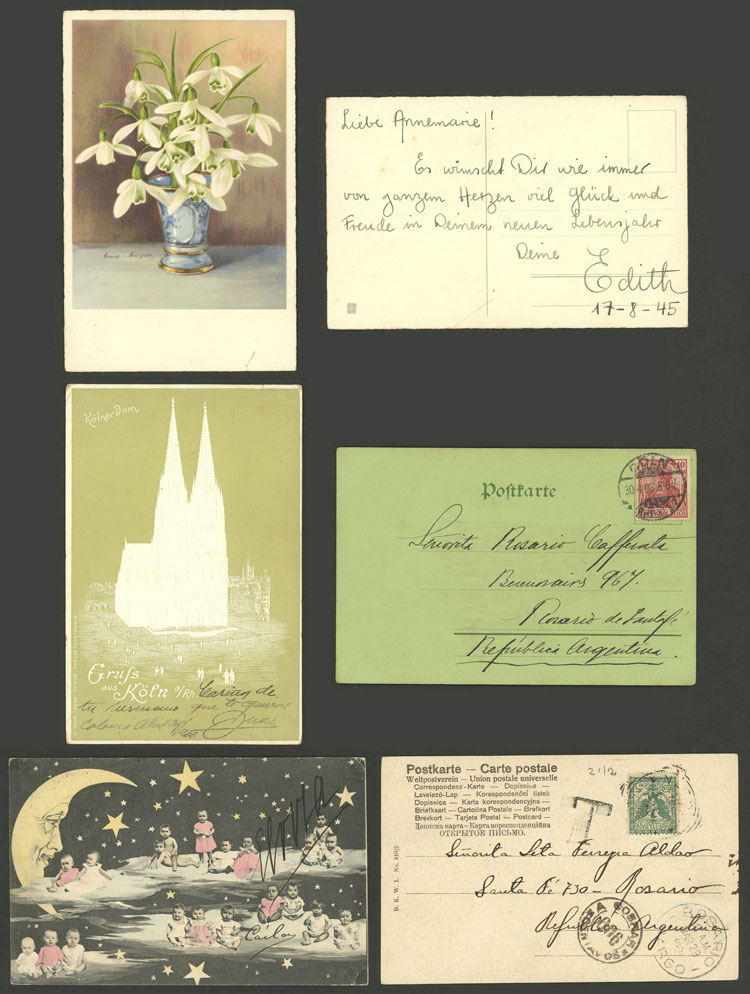 Liebe Annemarie!
Es wünscht Dir wie immer
von ganzem Herzen viel Glück und
Freude in Deinem neuen Lebensjahr
Deine
Edith
17-8-45
Kölner Dom
Gruſs
aus Köln a/Rh.
tu hermano que te quiere
Postkarte
10
Señorita Rosario Cafferata
Buenos aires 967.
Rosario de Santafé
República Argentina.
Carlos
Postkarte — Carte postale
Weltpostverein — Union postale universelle
Correspondenz-Karte — Dopisnice —
Levelező-Lap — Korespondenční lístek
Dopisnica — Karta korespondencyjna —
Briefkaart — Cartolina Postale — Brefkort
Brevkort — Tarjeta Postal — Postcard —
Дописна карта — Карта кореспонденційна
ОТКРЫТОЕ ПИСЬМО.
T
B. K. W. I. No.
Señorita Lita Ferreyra Aldao
Santa Fé 730 - Rosario
República Argentina
ROSARIO